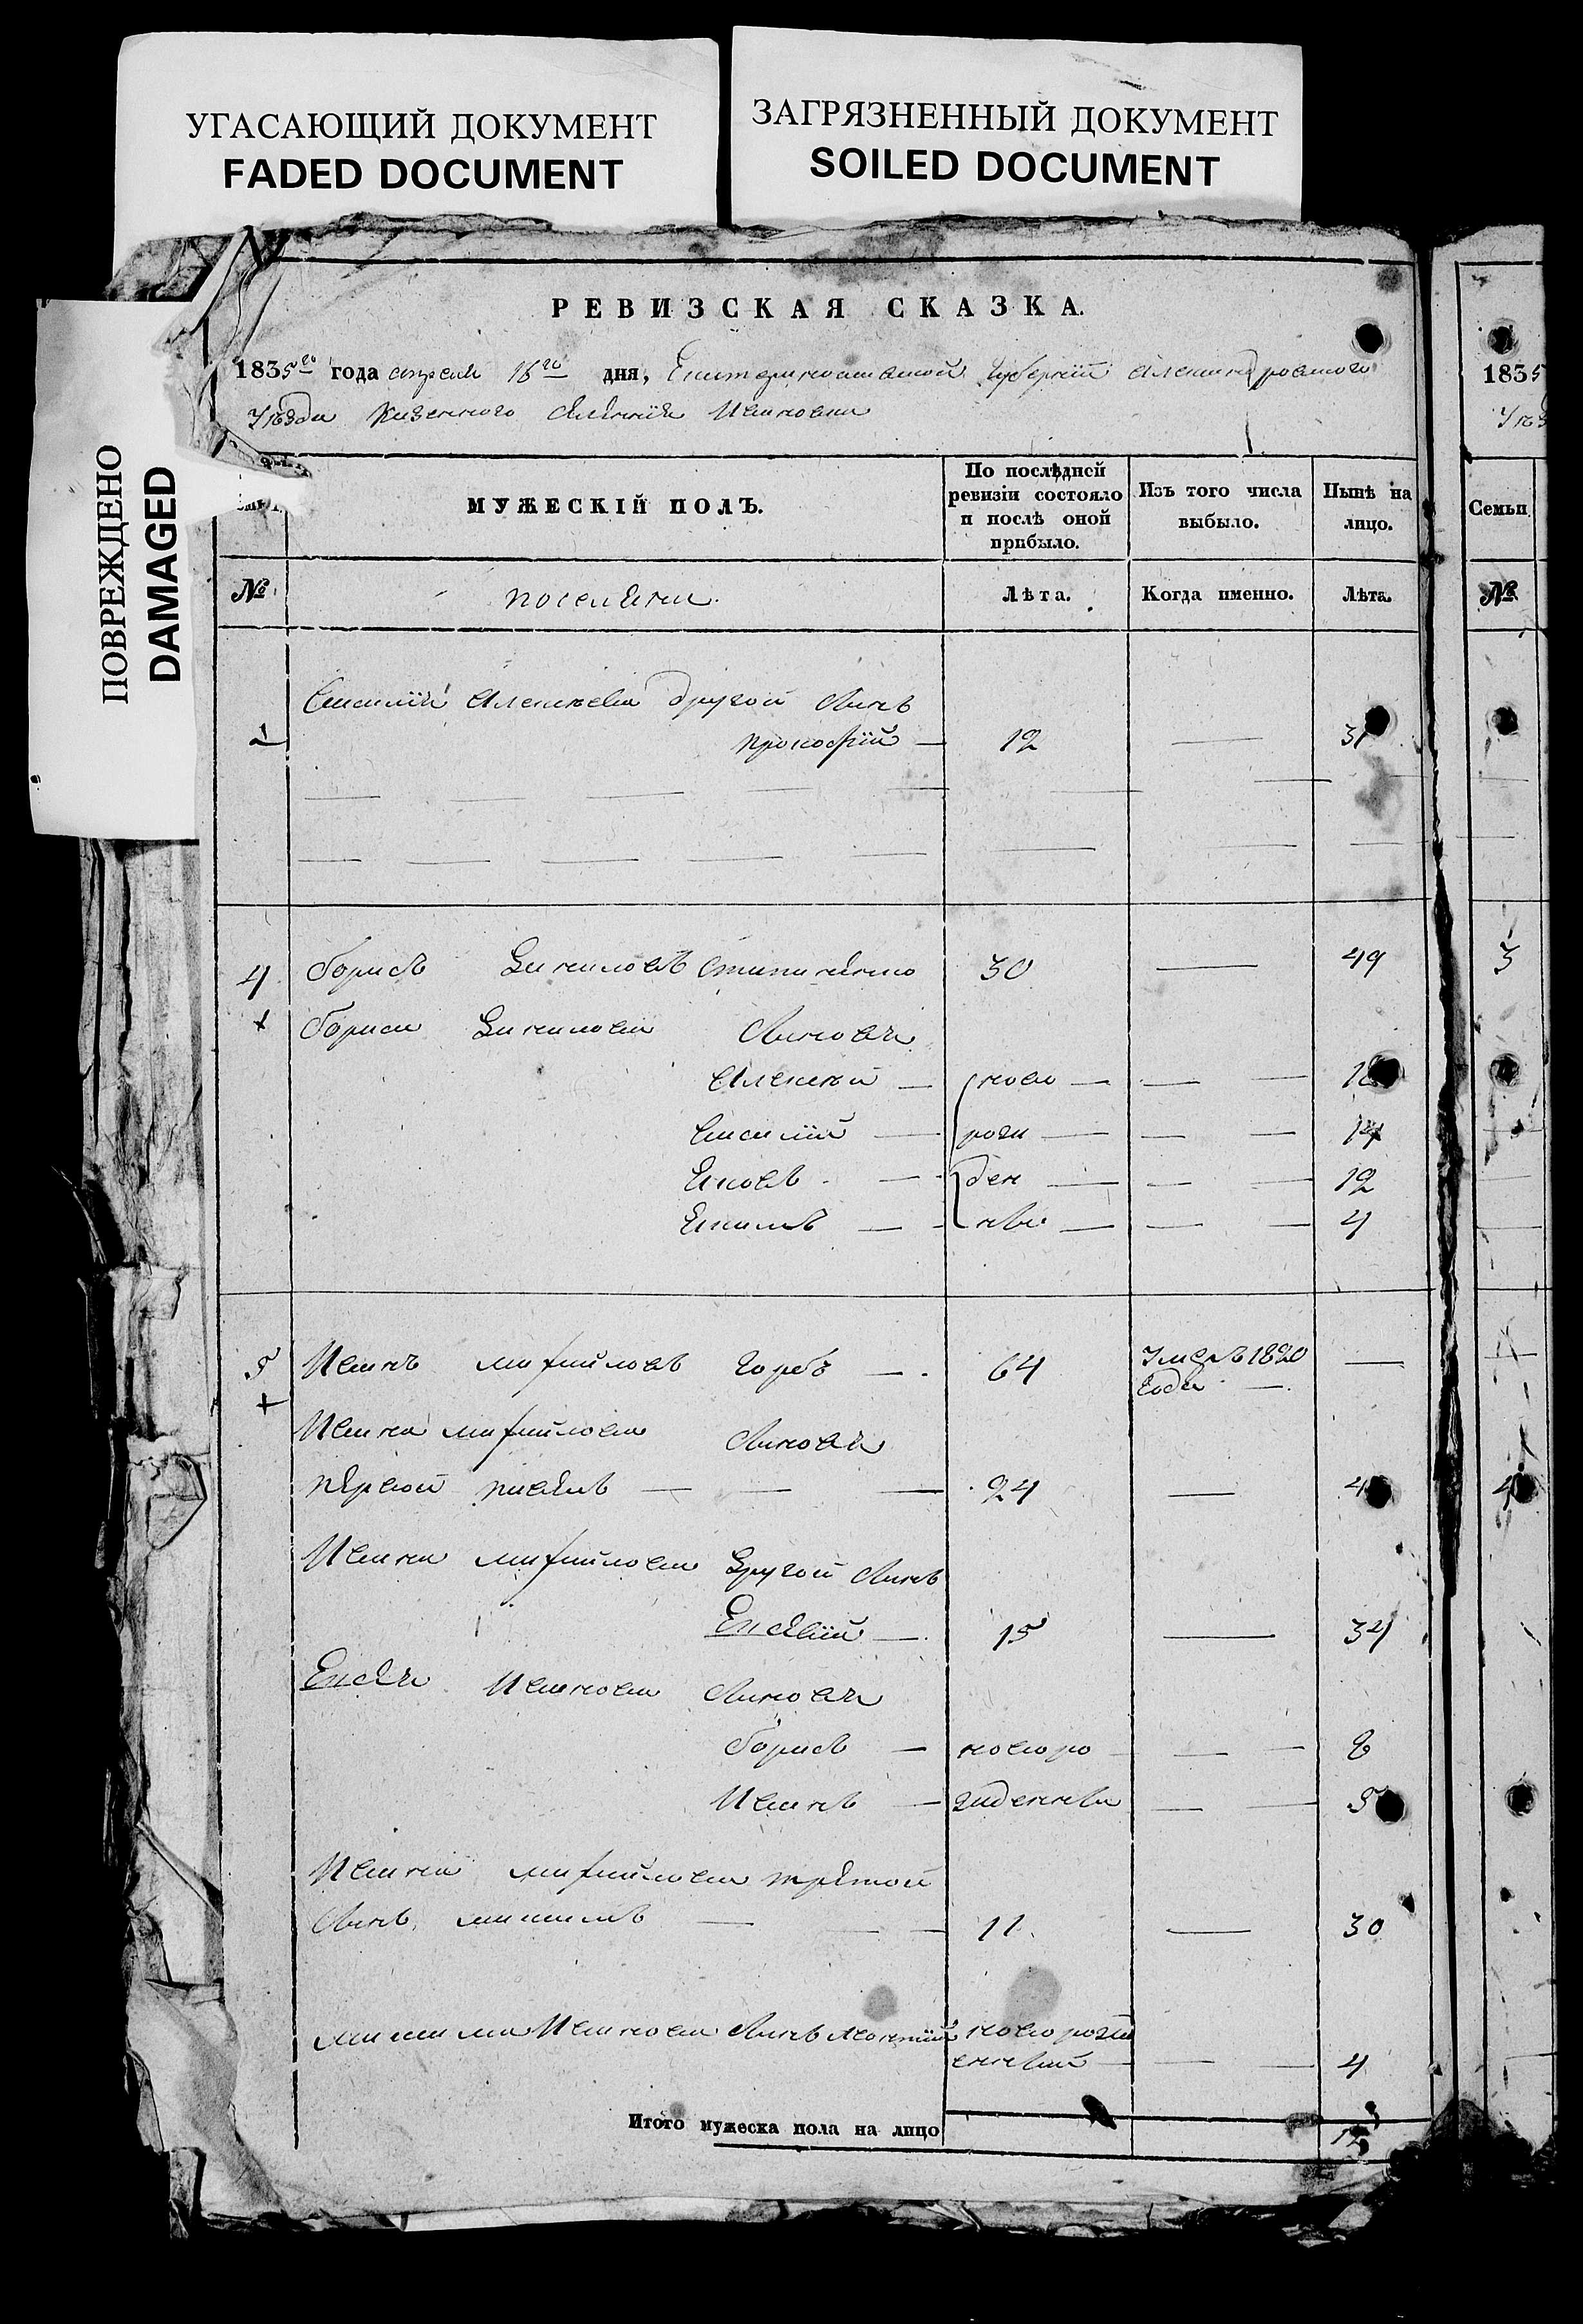 УГАСАЮЩИЙ ДОКУМЕНТ
FADED DOCUMENT
ЗАГРЯЗНЕННЫЙ ДОКУМЕНТ
SOILED DOCUMENT
ПОВРЕЖДЕНО
DAMAGED
РЕВИЗСКАЯ СКАЗКА.
1835го года апреля 18го дня, Екатеринославской Губернии Александровского
Уезда Казенного селения Ивановки
МУЖЕСКІЙ ПОЛЪ.
По послѣдней ревизіи состояло и послѣ оной прибыло.
Изъ того числа выбыло.
Нынѣ на лицо.
№
поселяни.
Лѣта.
Когда именно.
Лѣта.
Василия Алексеева другой Сынъ
Прокофій — 12 — 31
4 Борисъ Даниловъ 30 — 49
Бориса Данилова Сыновья
Алексей — ново —
Василий — рож — 14
Яковъ — ден — 12
Данилъ — ные — 4
5 Иванъ михайловъ Горбъ — 64 Умеръ 1820 —
года —
Ивана михайлова Сыновья
первой павелъ — 24 —
Ивана михайлова Другой Сынъ
Евсевий — 15 — 34
Евсея Иванова Сыновья
Борисъ — новоро — 8
Иванъ — жденные — 5
Ивана михайлова третей
Сынъ, максимъ — 11. — 30
максима Иванова Сынъ новорож
енный — 4
Итого мужеска пола на лицо
1835
Семьи
№
3
4